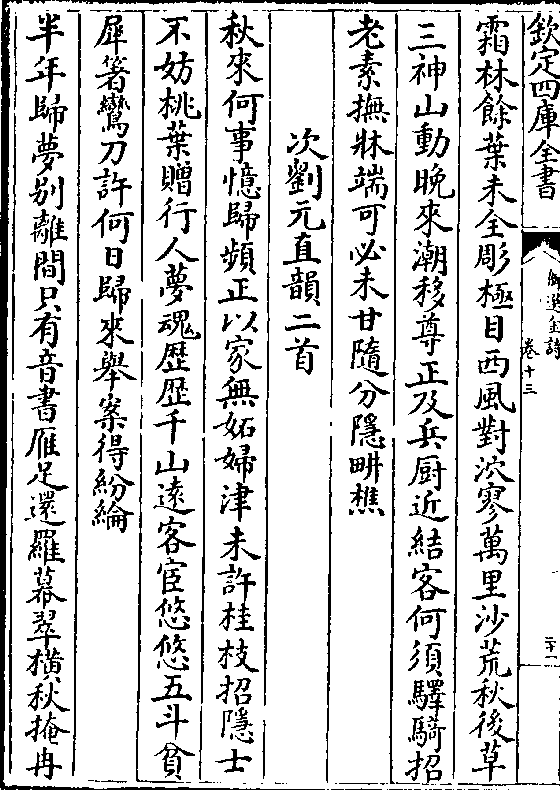 欽定四庫全書
御選金詩
卷十三
二十一
霜林餘葉未全彫極目西風對泬寥萬里沙荒秋後草
三神山動晚來潮移尊正及兵厨近結客何須驛騎招
老素撫牀端可必未甘隨分隱畊樵
次劉元直韻二首
秋來何事憶歸頻正以家無妬婦津未許桂枝招隱士
不妨桃葉贈行人夢魂歴歴千山遠客宦悠悠五斗貧
犀箸鸞刀許何日歸來舉案得紛綸
半年歸夢别離間只有音書雁足還羅幕翠橫秋掩冉